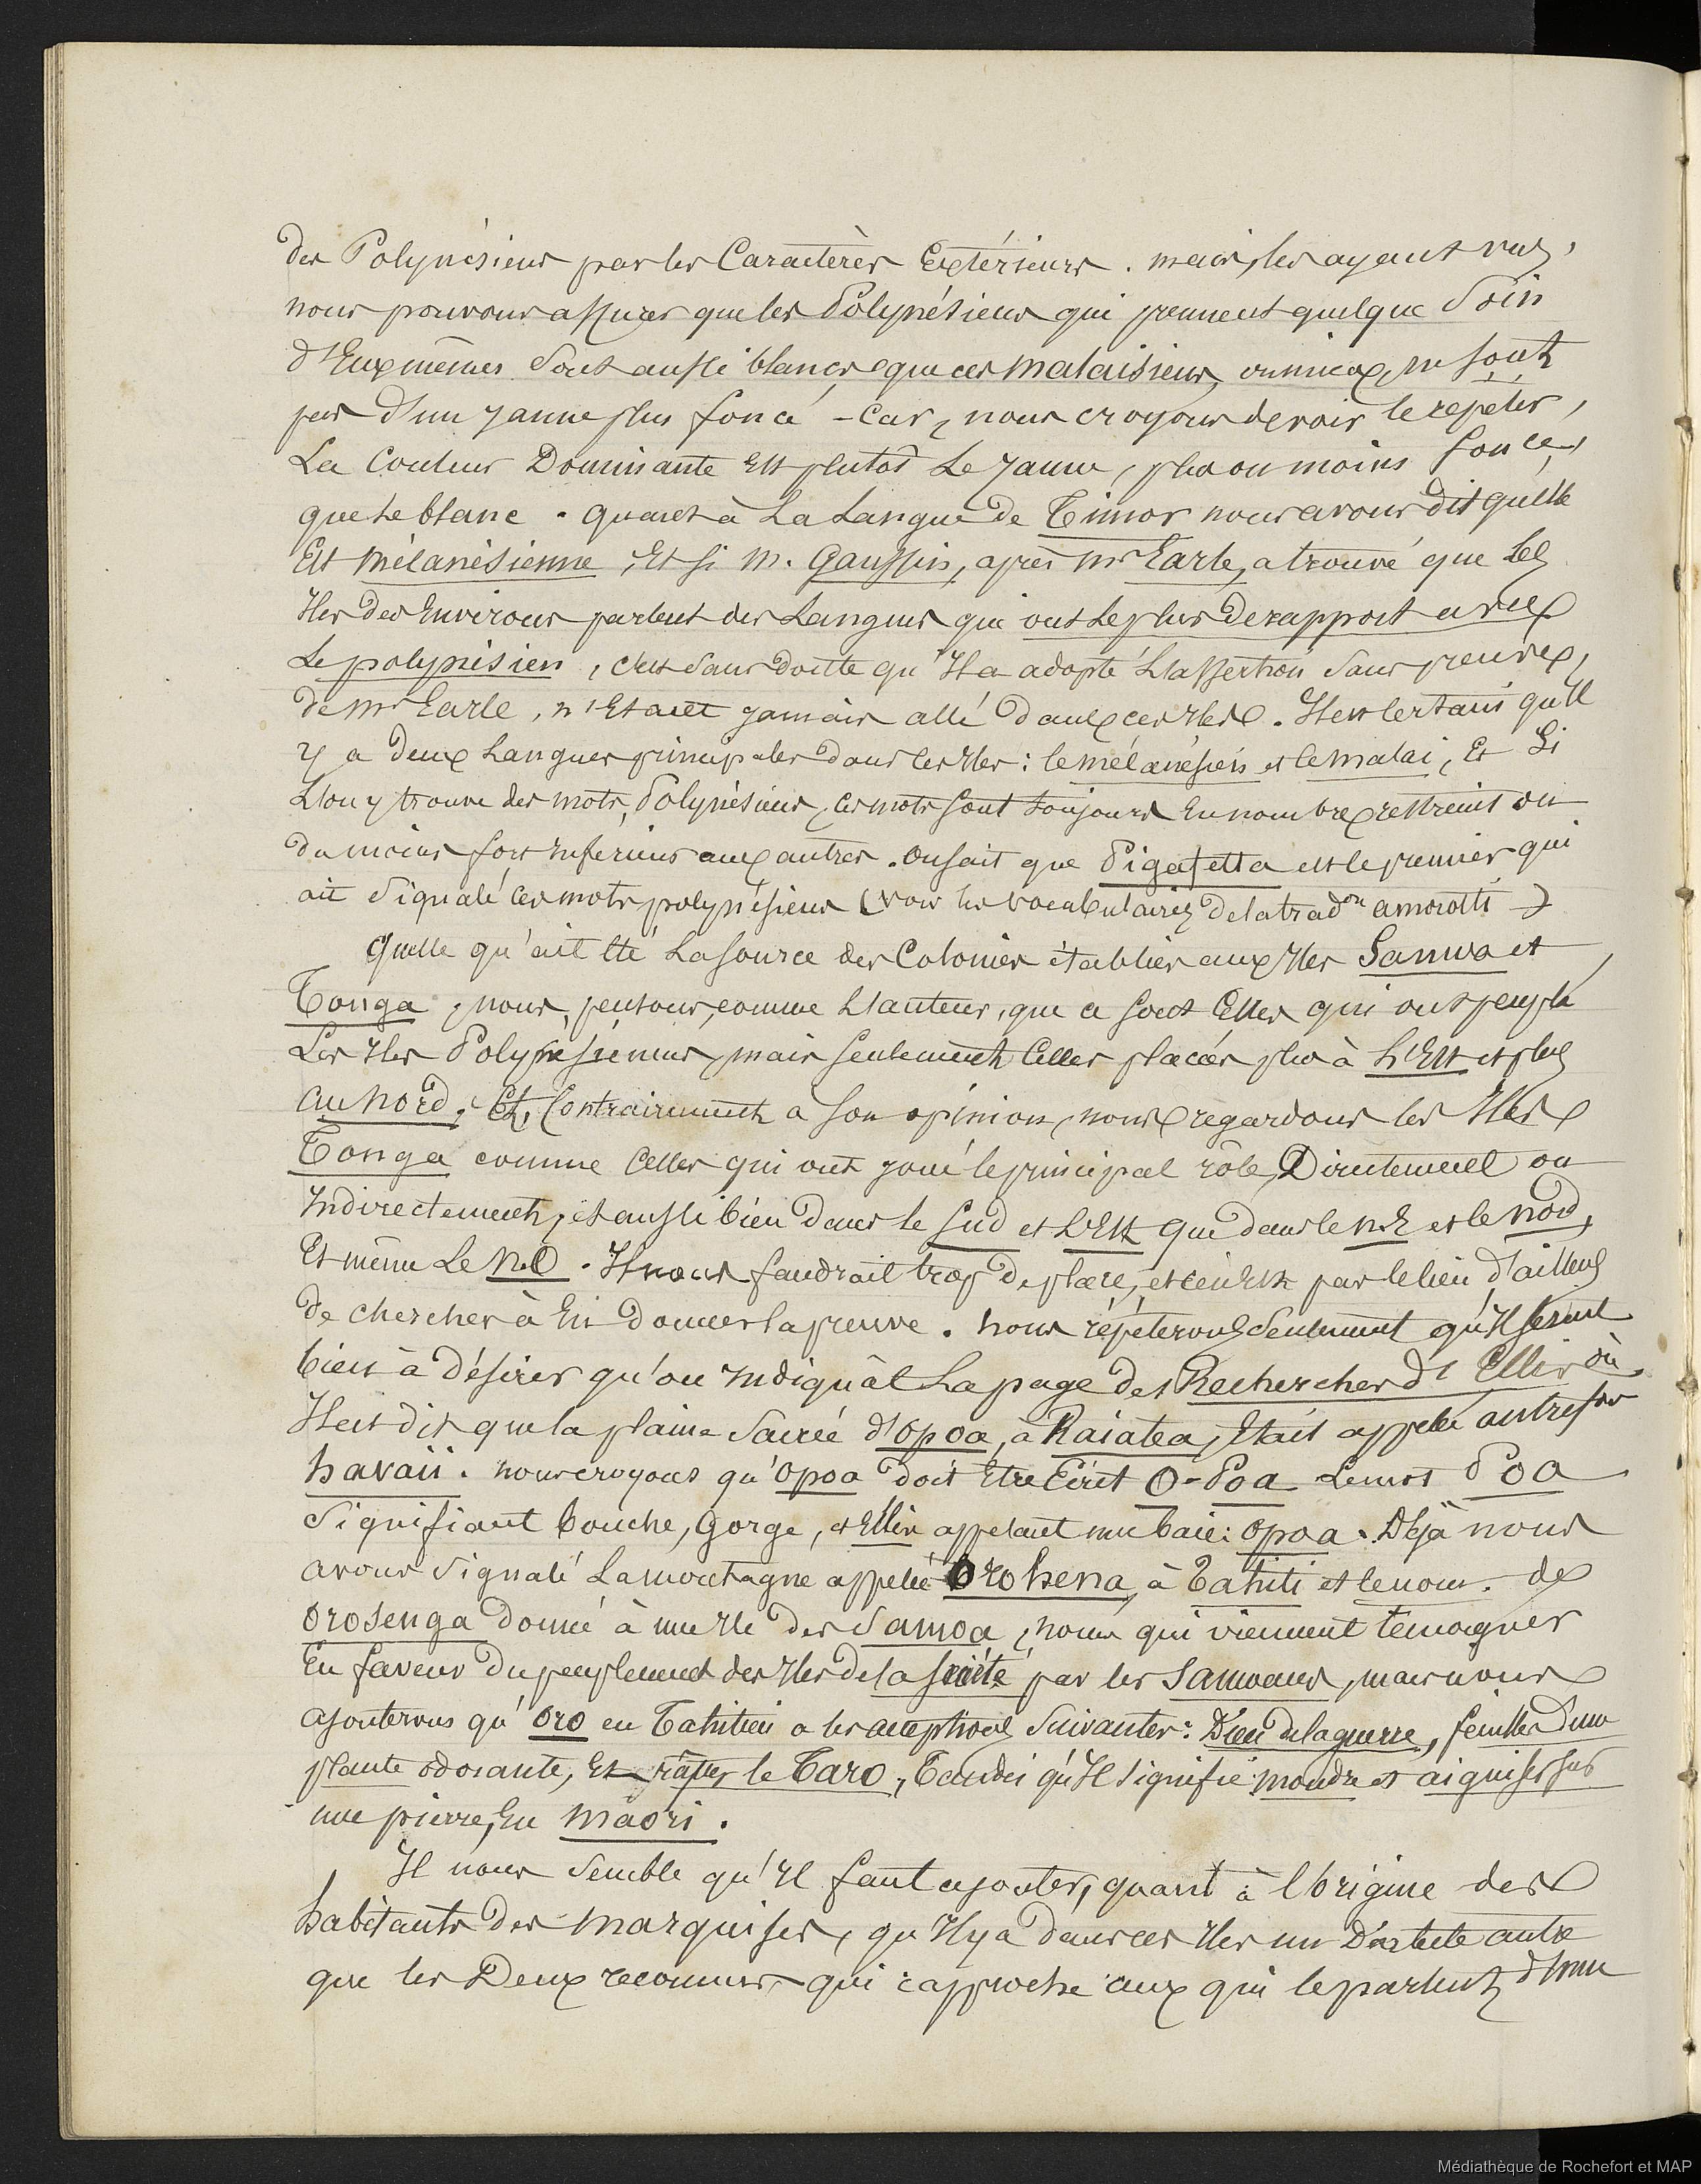 des Polynésiens par les Caractères Extérieurs. mais, les ayant vus,
nous pouvons assurer que les Polynésiens qui prennent quelque Soin
d'Eux mêmes Sont aussi blancs que ces malaisiens, ou mieux, ne sont
pas d'un jaune plus foncé - Car, nous croyons devoir le repéter,
La Couleur Dominante Est plutôt Le jaune, plus ou moins foncé,
que le blanc. quant à La Langue de Timor nous avons dit qu'elle
Est mélanésienne, Et si M. Gaussin, après Mr Earle, a trouvé que les
Iles des Environs parlent des Langues qui ont Le plus de rapport avec
Le polynésien, c'est Sans doute qu'Il a adopté L'assertion Sans preuves,
de Mr Earle, n'Etant jamais allé dans ces Iles. Il est certain qu'Il
y a deux Langues principales dans ces Iles : le mélanésien et le malai, Et Si
L'on y trouve des mots Polynésiens, ces mots sont toujours En nombre restreint ou
du moins fort Inférieur aux autres. On sait que Pigafetta est le premier qui
ait Signalé ces mots polynésiens (voir les vocabulaires de la tradon amoretti)
Quelle qu'ait Eté La source des Colonies établies aux Iles Samoa et
Tonga, nous pensons, comme L'auteur, que ce sont Elles qui ont peuplé
Les Iles Polynésiennes, mais seulement Celles placées plus à L'Est et plus
au nord. Et, Contrairement a son opinion, nous regardons les Iles
Tonga comme Celles qui ont joué le principal rôle, Directement ou
Indirectement, et aussi bien dans le Sud et L'Est que dans le N.E et le nord,
Et même Le N.O. Il nous faudrait trop de place, et ce n'Est pas le lieu d'ailleurs
de chercher à En donner la preuve. nous répéterons Seulement qu'Il serait
bien à désirer qu'on Indiquât La page des Recherches d'Ellis où
Il est dit que la plaine Sacrée d'Opoa, à Raiatea, Etait appelée autrefois
havaïi. nous croyons qu'opoa doit Etre Ecrit O-Poa Le mot Poa
Signifiant bouche, Gorge, et Ellis appelant une baie : opoa. Déjà nous
avons Signalé La montagne appelée Orohena, à Tahiti et le nom de
Orosenga donné à une Ile des Samoa, noms qui viennent témoigner
En faveur du peuplement des Iles de la Société par les Samoans, mais nous
ajouterons qu'oro en Tahitien a les acceptions Suivantes : Dieu de la guerre, feuilles d'une
plante odorante, Et râper le Taro, Tandis qu'Il signifie moudre et aiguiser sur
une pierre, En Māori.
Il nous Semble qu'Il faut ajouter, quant à l'origine des
habitants des Marquises, qu'Il y a dans ces Iles un Dialecte autre
que les Deux reconnus, qui rapproche ceux qui le parlent d'une
Médiathèque de Rochefort et MAP